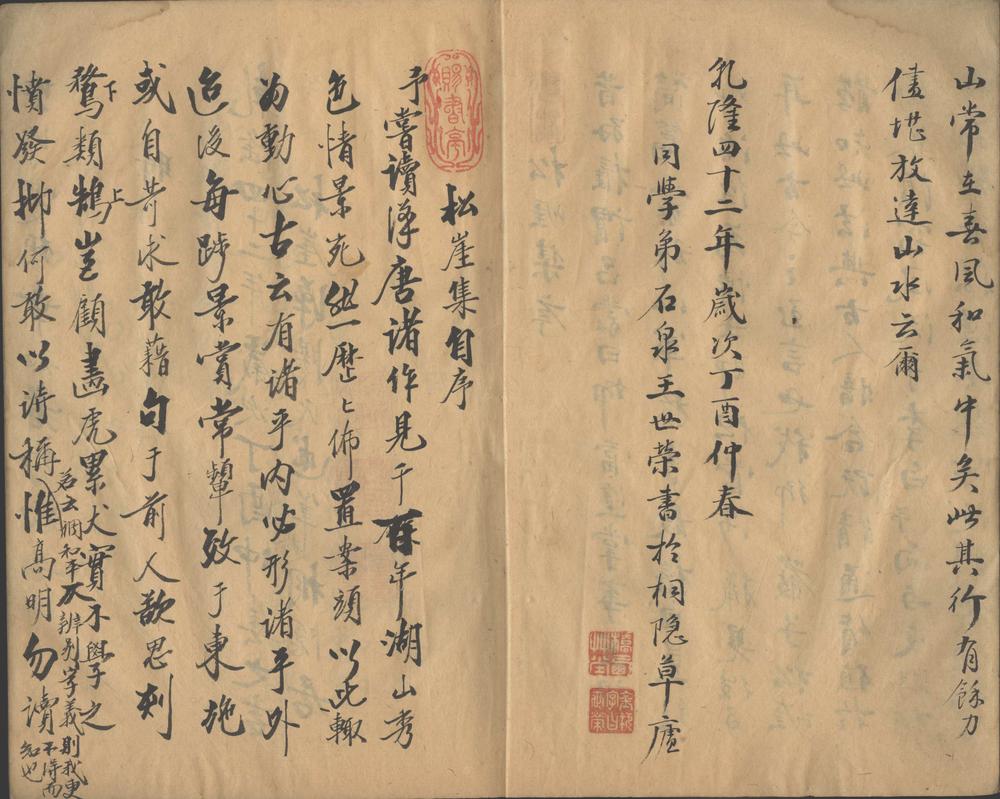 山常在喜風和氣中矣此其行有餘力
儘堪放達山水云爾
乾隆四十二年歲次丁酉仲春
同學弟石泉王世榮書於桐隱草廬
松崖集自序
予嘗讀漢唐諸作見千百年湖山秀
色情景宛然一歷歷佈置案頭以此輙
为動心古云有諸乎内必形諸乎外
迨後每踄景賞常顰效于東施
或自苛求敢藉句于前人歆思刻
鶩類鵠豈顧畫虎累犬實不與予之
下
上
憤發抑何敢以詩稱惟高明勿讀
若云調和平
辨别字義
則我更
不得而
知也